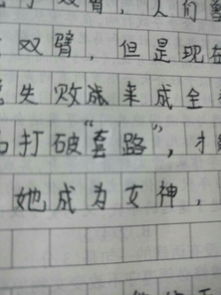 双臂，人们
双臂，但是现在
失败来成全
打破“套路”，才
她成为女神，